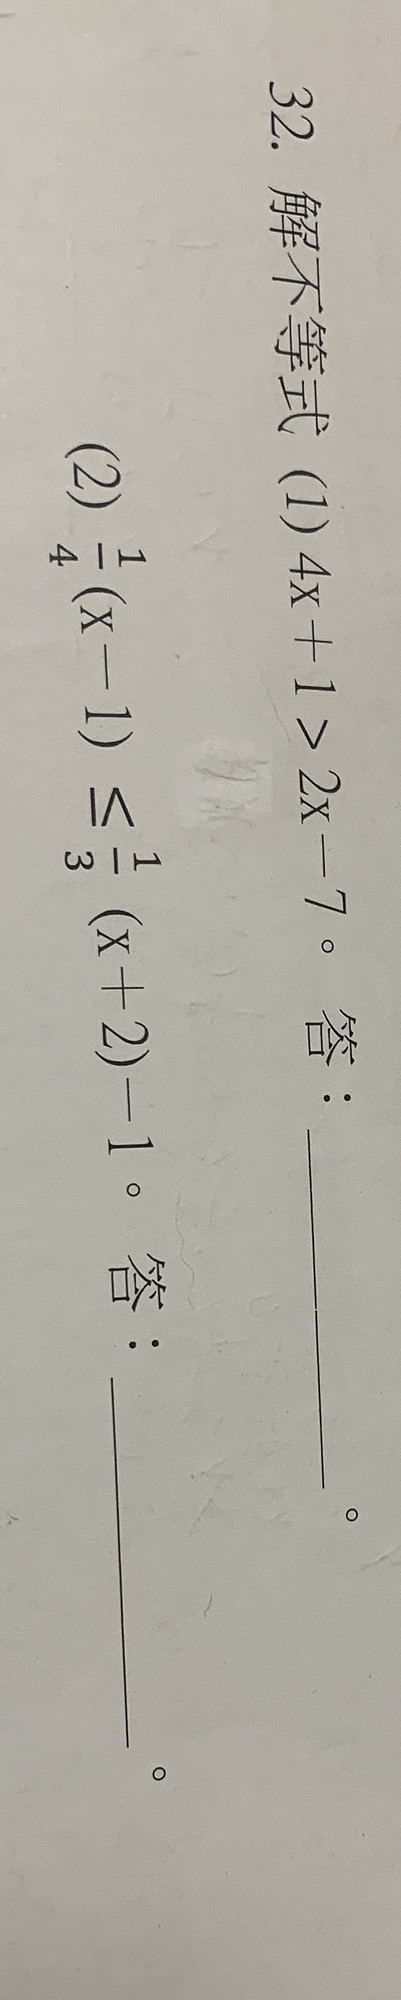 32. 解不等式 (1) 4x+1>2x-7。 答：________。
(2) $\frac{1}{4}$(x-1) ≤ $\frac{1}{3}$(x+2)-1。 答：________。